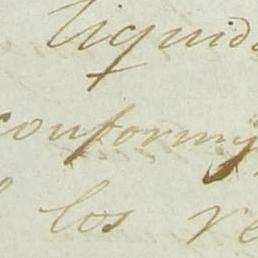 liquid
conform
los re